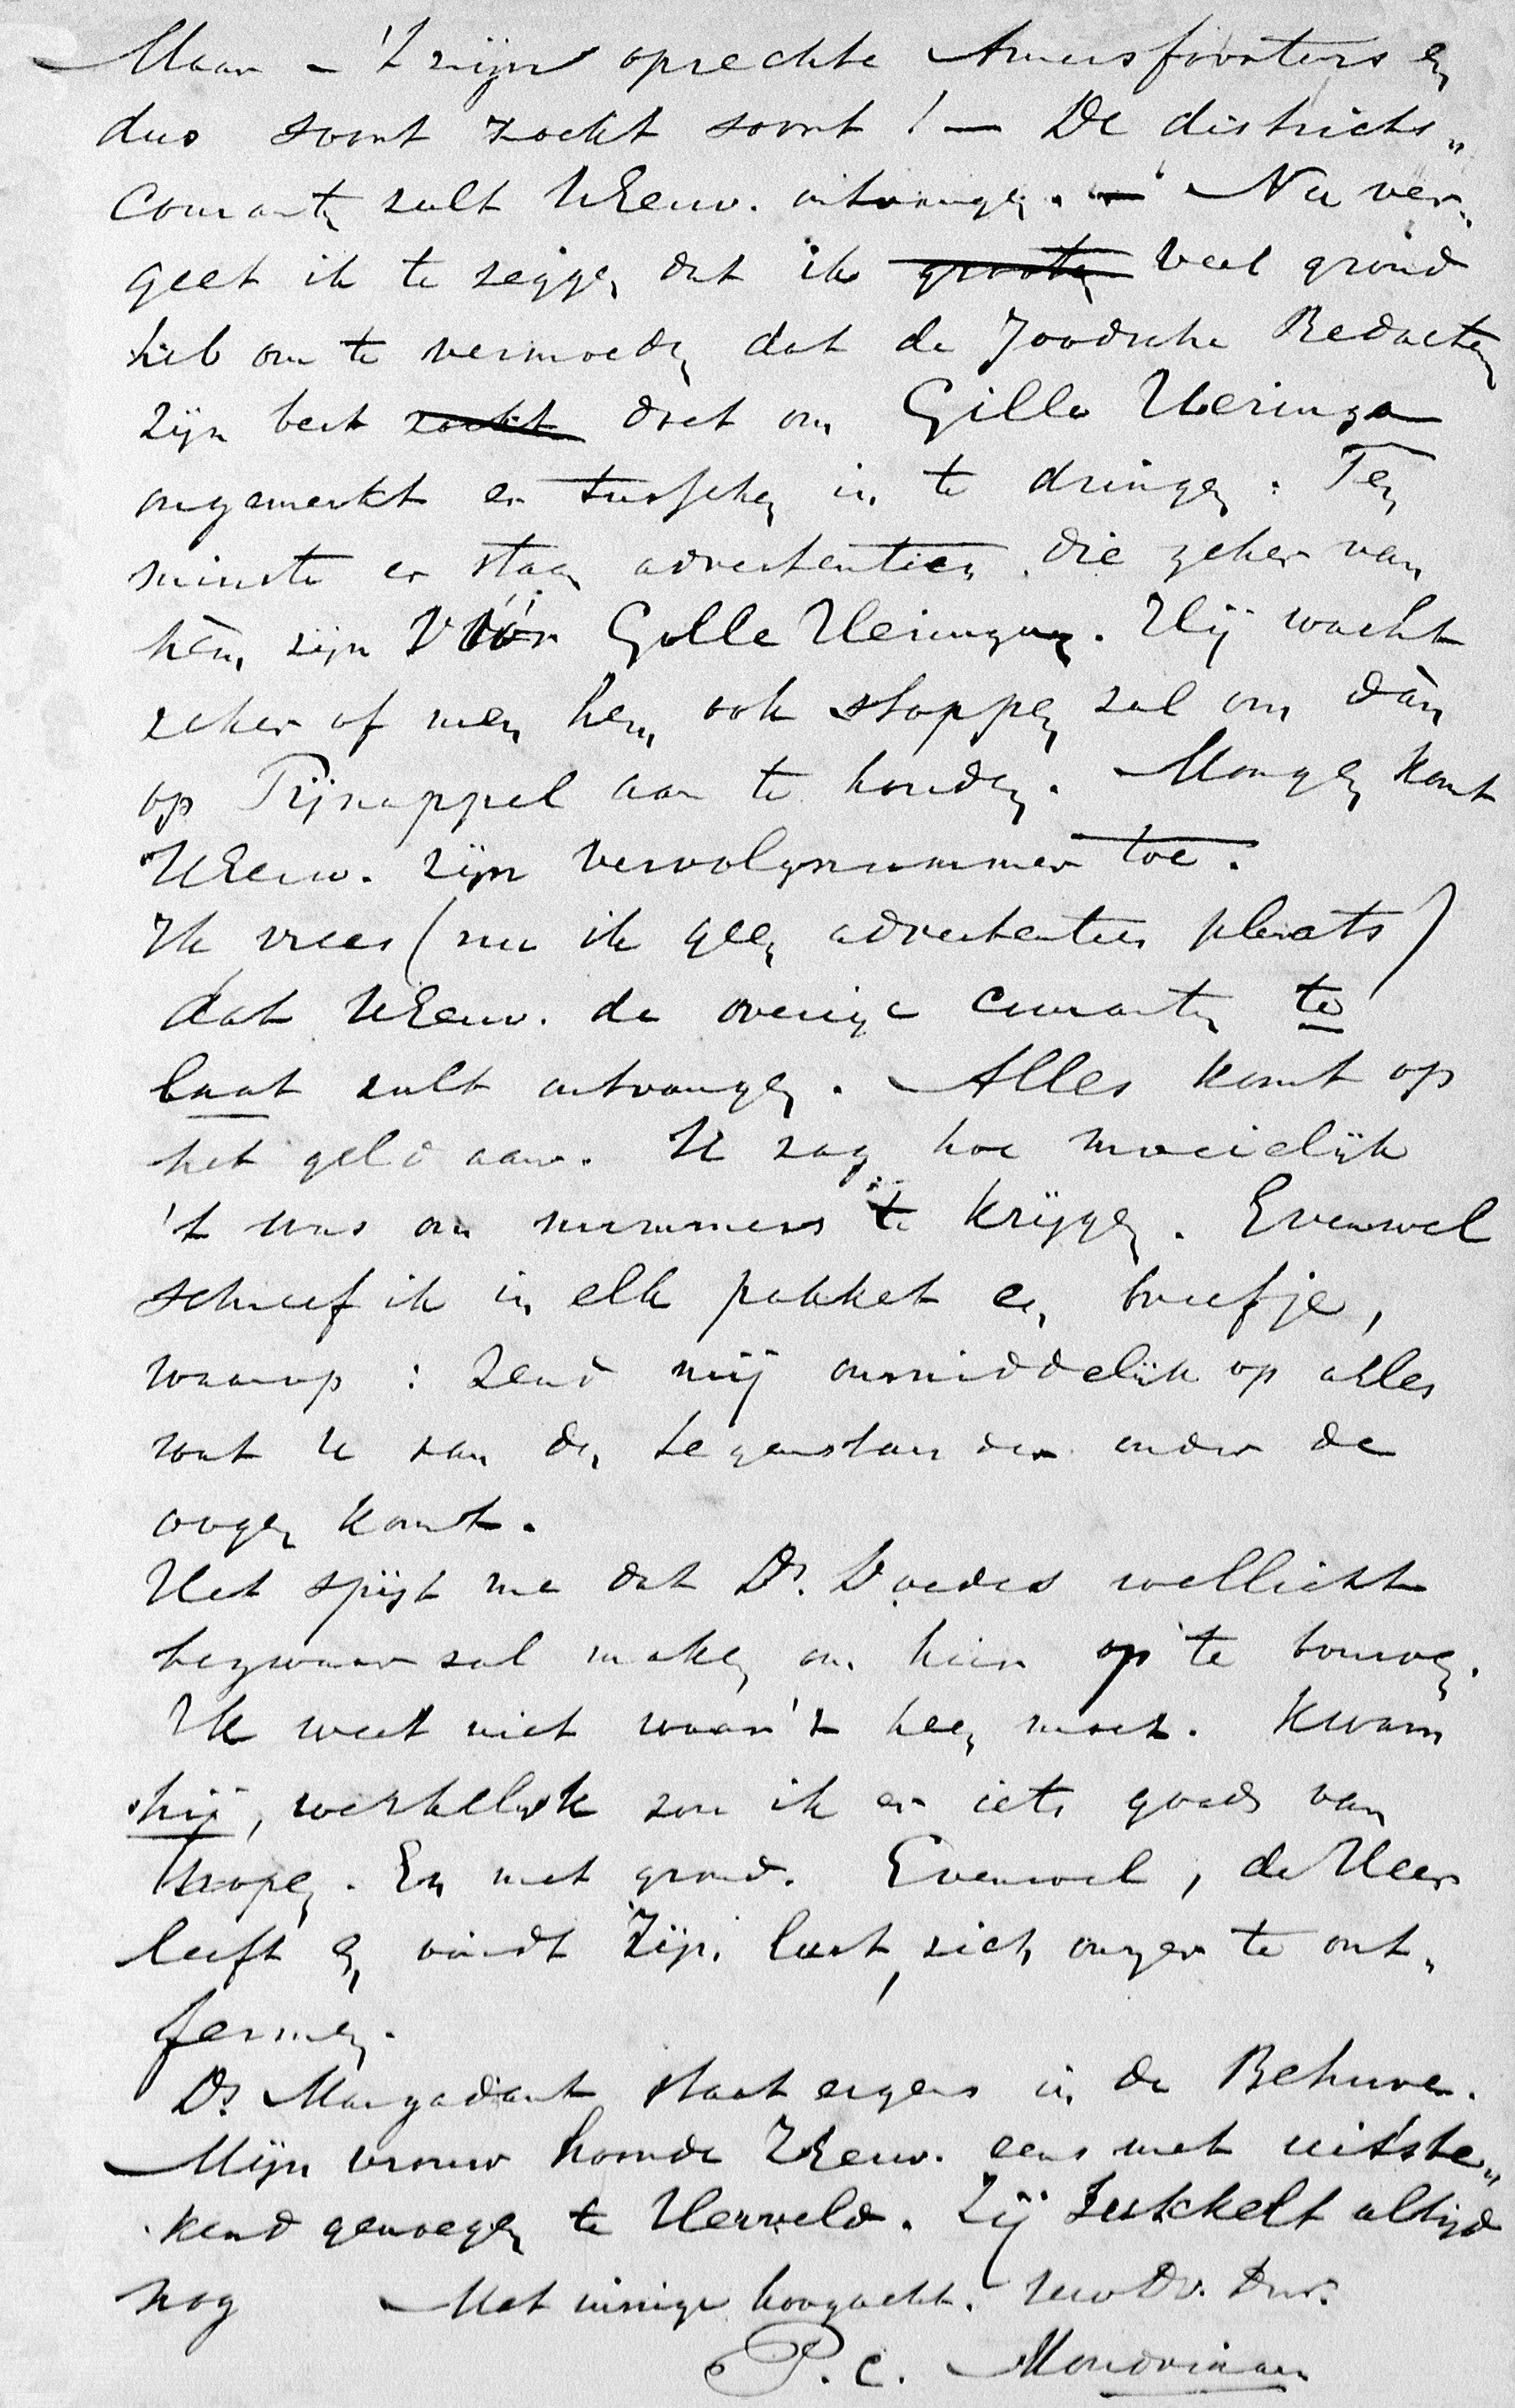 Maar - 't zijn oprechte Amersfoorters en
dus soort zoekt soort! — De districts„
Couranten zult UEerw. ontvangen. — Nu ver„
geet ik te zeggen dat ik grooten veel grond
heb om te vermoeden dat de Joodsche Redacteur
zijn best zoekt doet om Gille Heringa
ongemerkt er tusschen in te dringen. Ten
minste er staan advertentien die zeker van
hem zijn Vóór Gille Heringa. Hij wacht
zeker of men hem ook stoppen zal om dàn
op Pijnappel aan te houden. Morgen komt
UEerw. zijn vervolgnummer toe.
Ik vrees (nu ik geen advertenties plaats)
dat UEerw. de overige couranten te
laat zult ontvangen. Alles komt op
het geld aan. U zag hoe moeielijk
't was om nummers te krijgen. Evenwel
schreef ik in elk pakket een briefje,
waarop: Zend mij onmiddelijk op alles
wat U van den tegenstander onder de
oogen komt.
Het spijt me dat Dr. Doedes wellicht
bezwaar zal maken om hier op te bouwen.
Ik weet niet waar 't heen moet. Kwam
hij, werkelijk zou ik er iets goeds van
hopen. En met grond. Evenwel, de Heer
leeft en vindt Zijn lust, zich onzer te ont„
fermen.
Ds. Margadant staat ergens in de Betuwe.
Mijn vrouw hoorde UEerw. eens met uitste„
kend genoegen te Herveld. Zij sukkelt altijd
nog Met innige hoogacht. Uw Dv. Dnr.
P. C. Mondriaan